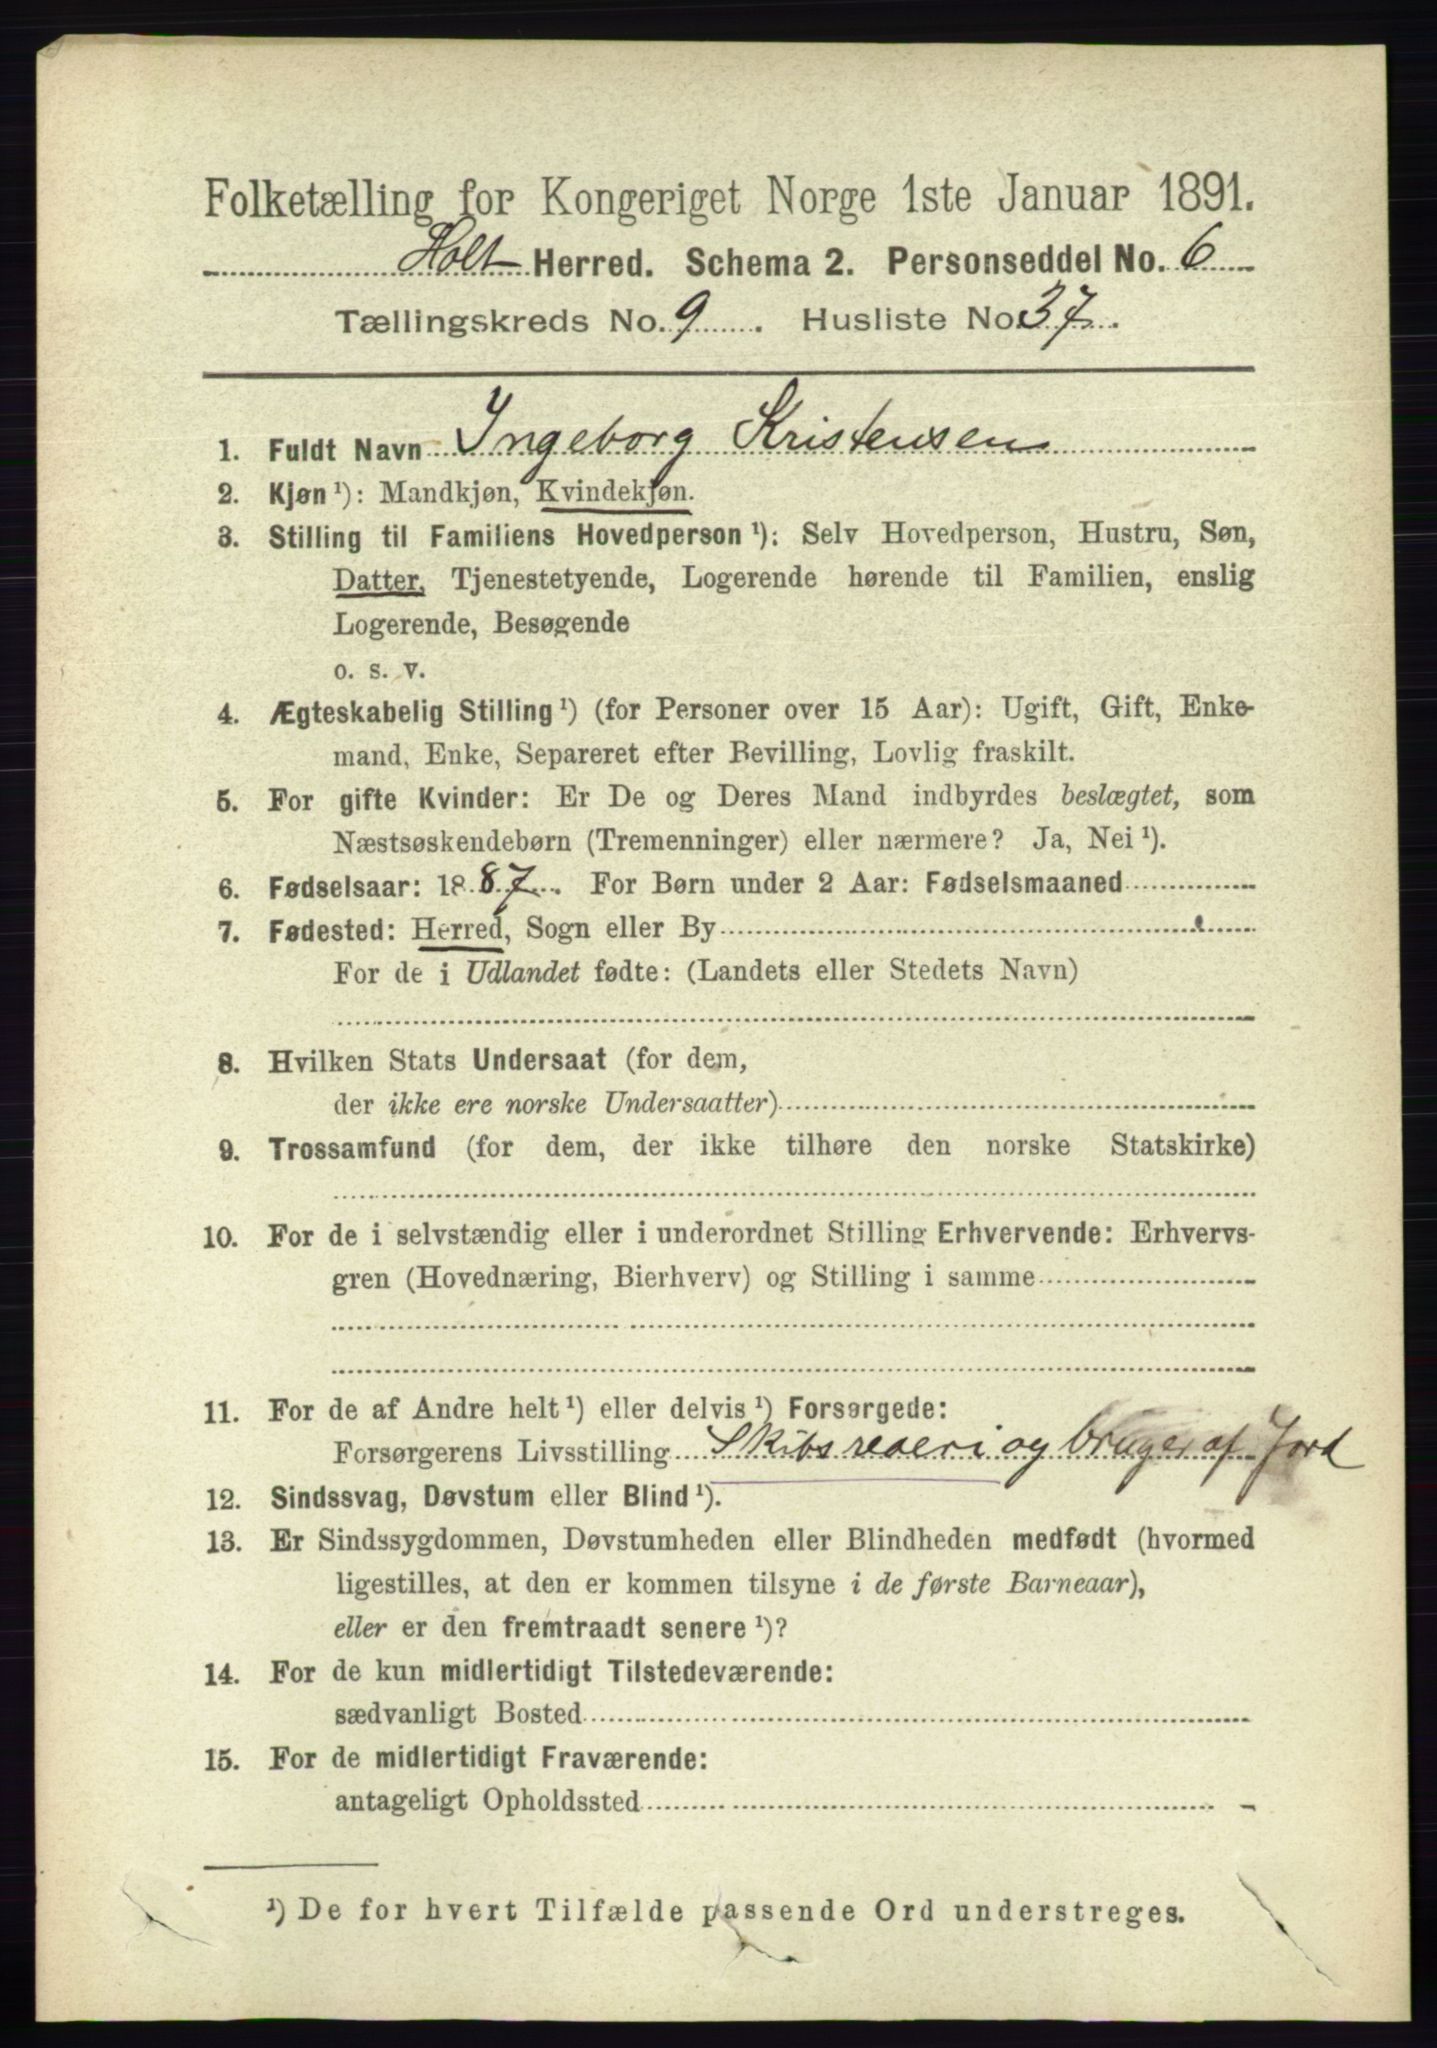 Folketælling for Kongeriget Norge 1ste Januar 1891.
Holt Herred. Schema 2. Personseddel No. 6
Tællingskreds No. 9. Husliste No. 37.
1. Fuldt Navn Ingeborg Kristensen
2. Kjøn ¹): Mandkjøn, Kvindekjøn.
3. Stilling til Familiens Hovedperson ¹): Selv Hovedperson, Hustru, Søn,
Datter, Tjenestetyende, Logerende hørende til Familien, enslig
Logerende, Besøgende
o. s. v.
4. Ægteskabelig Stilling ¹) (for Personer over 15 Aar): Ugift, Gift, Enke-
mand, Enke, Separeret efter Bevilling, Lovlig fraskilt.
5. For gifte Kvinder: Er De og Deres Mand indbyrdes beslægtet, som
Næstsøskendebørn (Tremenninger) eller nærmere? Ja, Nei ¹).
6. Fødselsaar: 1887. For Børn under 2 Aar: Fødselsmaaned
7. Fødested: Herred, Sogn eller By
For de i Udlandet fødte: (Landets eller Stedets Navn)
8. Hvilken Stats Undersaat (for dem,
der ikke ere norske Undersaatter)
9. Trossamfund (for dem, der ikke tilhøre den norske Statskirke)
10. For de i selvstændig eller i underordnet Stilling Erhvervende: Erhvervs-
gren (Hovednæring, Bierhverv) og Stilling i samme
11. For de af Andre helt ¹) eller delvis ¹) Forsørgede:
Forsørgerens Livsstilling Skibsrederi og bruger af Jord
12. Sindssvag, Døvstum eller Blind ¹).
13. Er Sindssygdommen, Døvstumheden eller Blindheden medfødt (hvormed
ligestilles, at den er kommen tilsyne i de første Barneaar),
eller er den fremtraadt senere ¹)?
14. For de kun midlertidigt Tilstedeværende:
sædvanligt Bosted
15. For de midlertidigt Fraværende:
antageligt Opholdssted
¹) De for hvert Tilfælde passende Ord understreges.